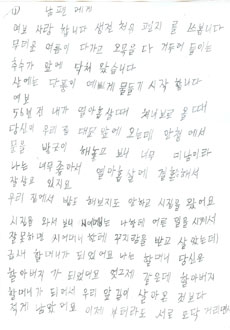 ① 남편에게
여보 사랑 합니다 생전 처음 편지 를 쓰봅니다
무더운 여름이 다가고 오곡을 다 거두어 들이는
추수가 앞에 닥쳐 왔습니다
산에는 단풍이 예쁘게 물들기 시작 합니다
여보
56년전 내가 열아홉살때 처녀보로 올때
당신이 우리 집 대문 앞에 오는데 안청에서
문을 반구이 해놓고 보니 너무 미남이라
나는 너무좋아서 열아홉살에 결혼해서
잘살고 있지요
우리 집에서 밥도 해보지도 안하고 시집을 왔어요
시집을 와서 보니 시어매는 나한테 어른 일을 시켜서
잘못하면 시어머니 한테 꾸지람을 받고 살았는데
금새 할머니가 되었어요 나는 할머니 당신은
할아버지 가 되었어요 엇그제 같은데 할아버지
할머니가 되어서 우리 앞길이 살아온 것보다
적게 남았어요 이제 부터라도 서로 도닥거리면